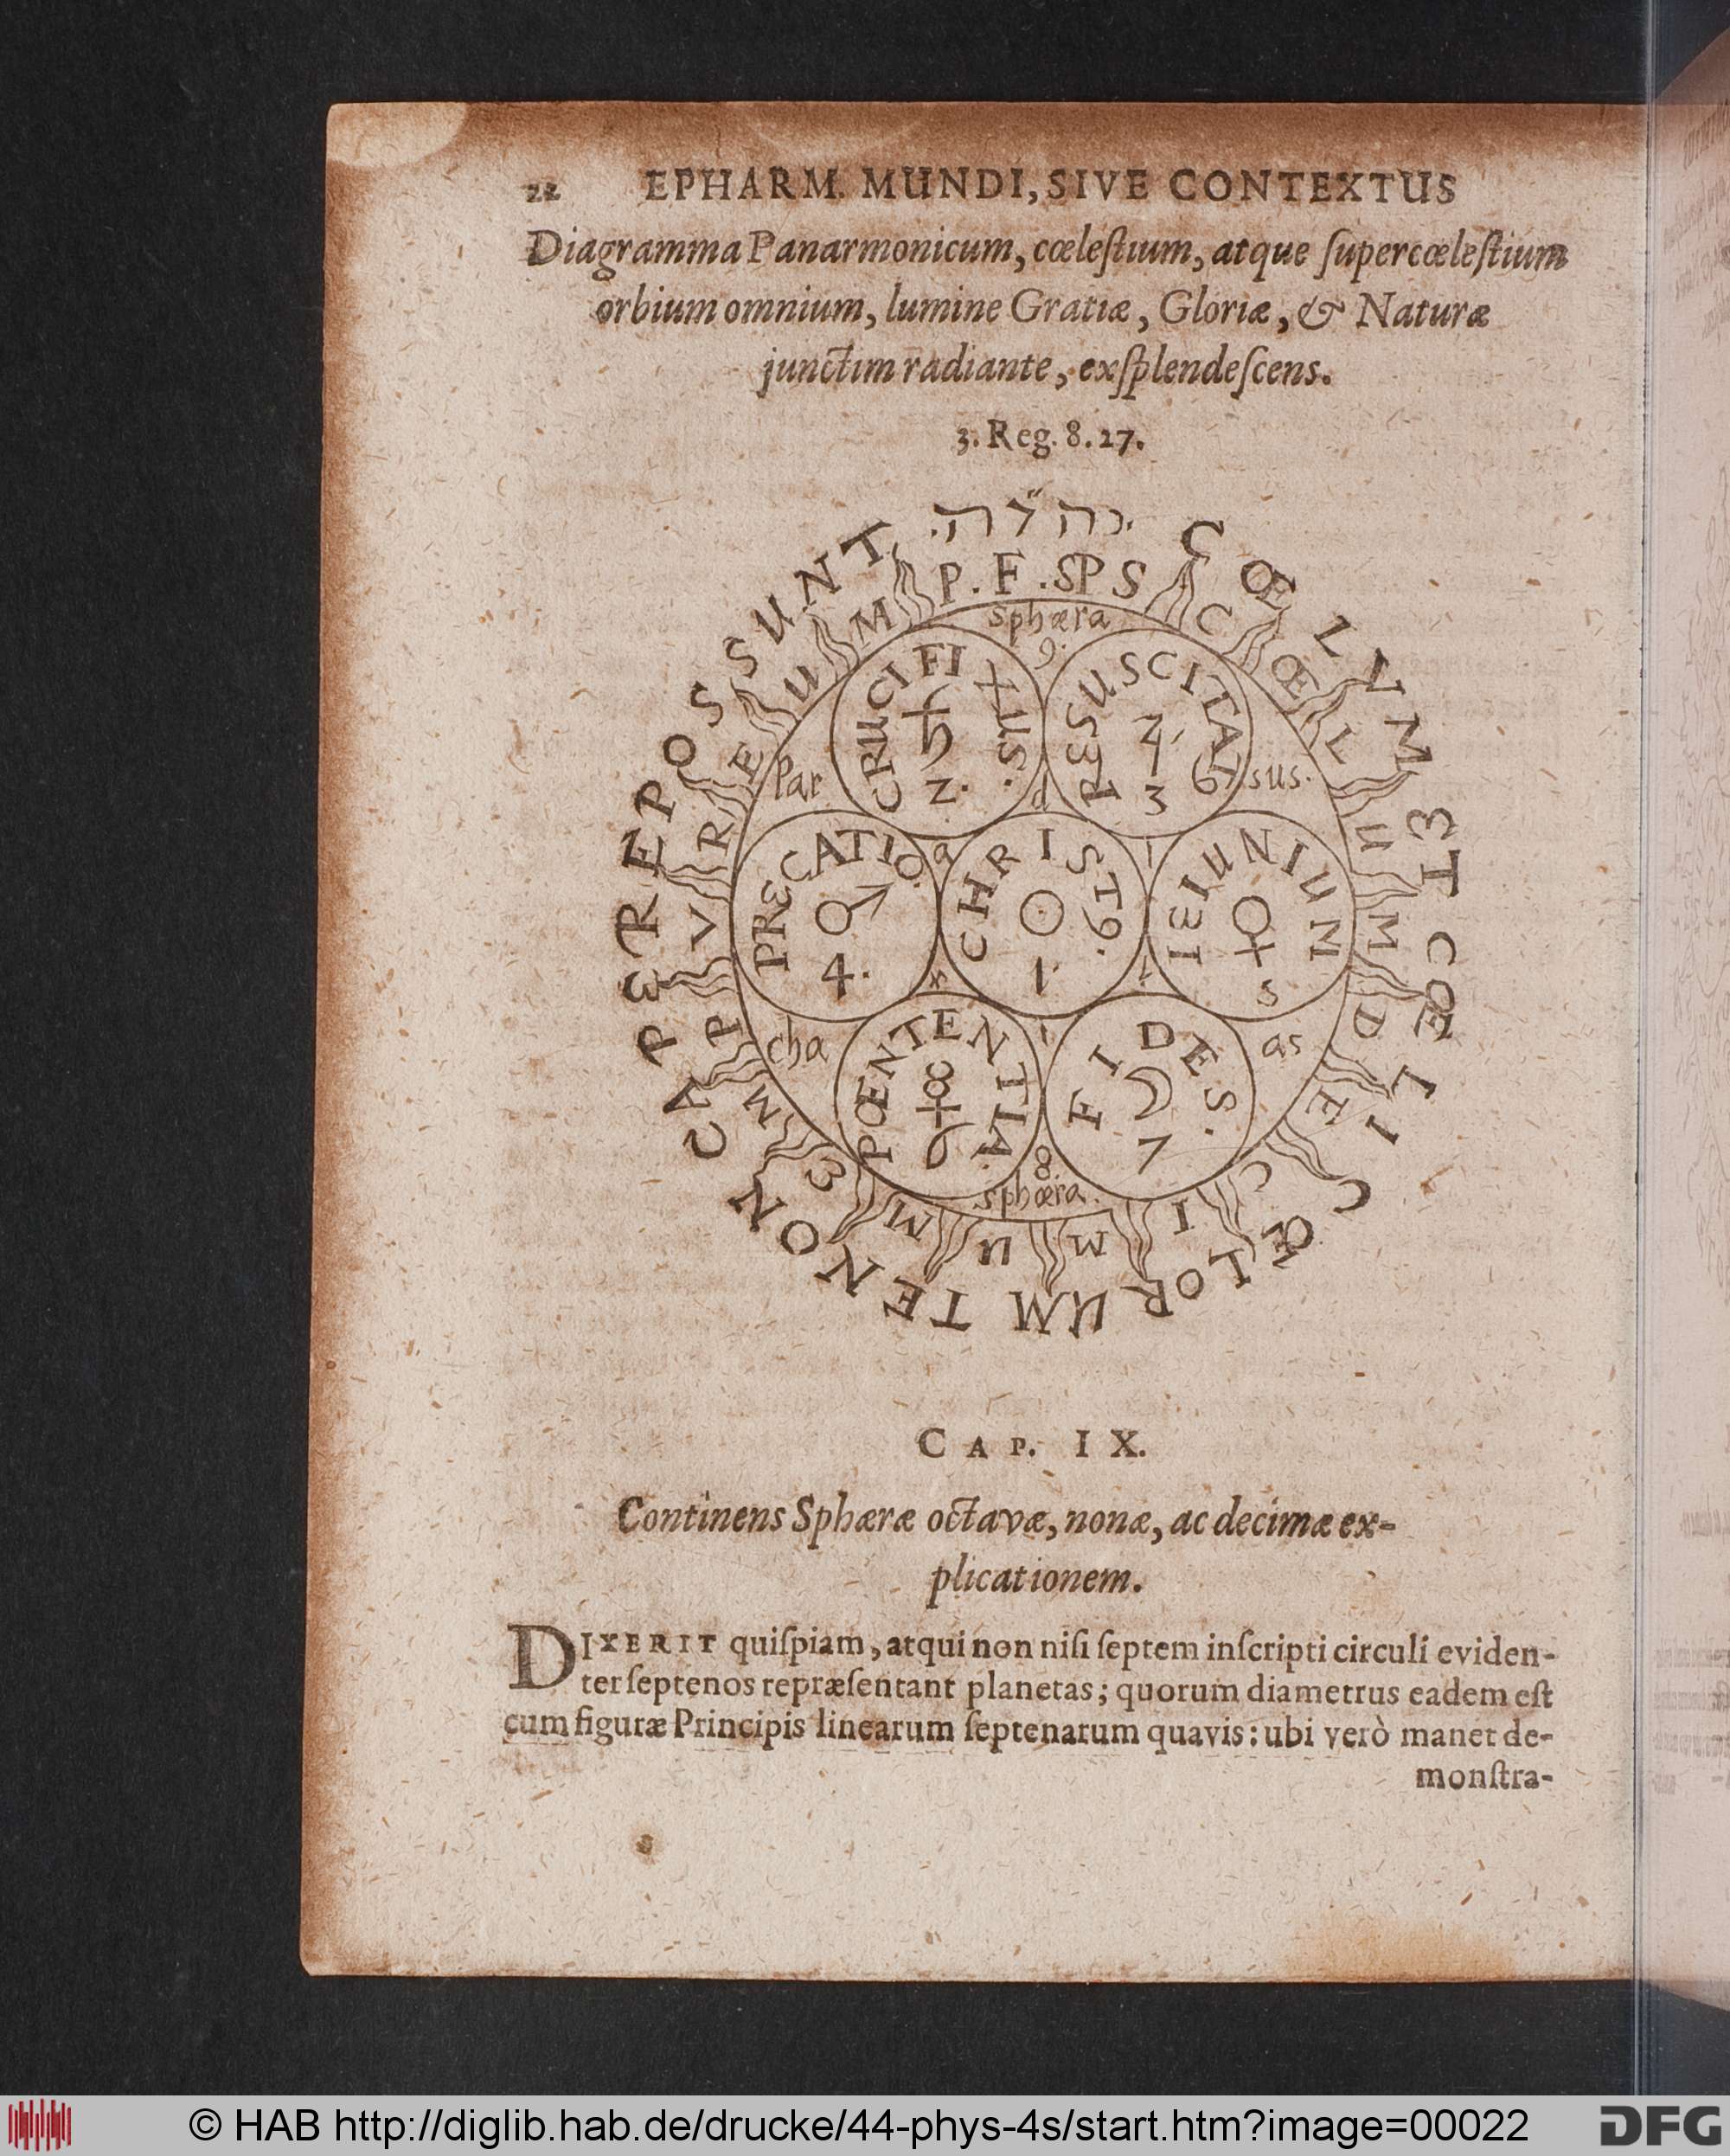 22 EPHARM. MUNDI, SIVE CONTEXTUS
Diagramma Panarmonicum, cœleſtium, atque ſupercœleſtium
orbium omnium, lumine Gratiæ, Gloriæ, & Naturæ
junctim radiante, exſplendeſcens.
3. Reg. 8. 27.
יהוה
CŒLVM ET CŒLI CŒLORUM TE NON CAPERE POSSUNT
P. F. SPS
CŒLUM DECIMUM EMPVREUM
sphæra
9.
CRUCIFIXUS.
♄
2.
RESUSCITAT9
♃
3
Par a d sus.
PRECATIO.
♂
4.
CHRIST9.
☉
1.
IEIUNIUM
♀
5
cha as
PŒNTENTIA.
☿
6
FIDES.
☽
7
8.
sphæra.
CAP. IX.
Continens Sphæræ octavæ, nonæ, ac decimæ ex-
plicationem.
DIXERIT quiſpiam, atqui non niſi ſeptem inſcripti circuli eviden-
ter ſeptenos repræſentant planetas; quorum diametrus eadem eſt
cum figuræ Principis linearum ſeptenarum quavis: ubi verò manet de-
monſtra-
© HAB http://diglib.hab.de/drucke/44-phys-4s/start.htm?image=00022
DFG